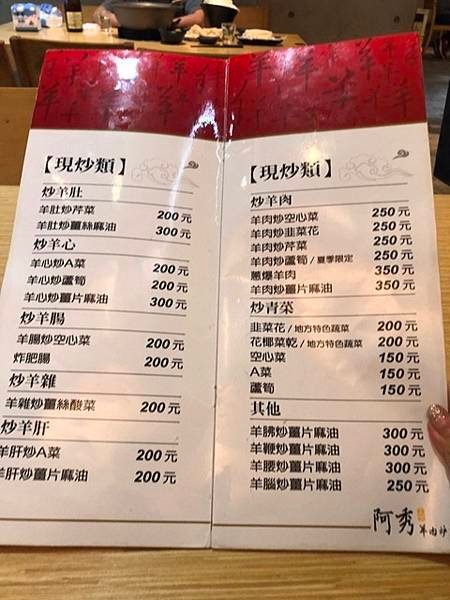 【現炒類】
炒羊肚
羊肚炒芹菜 200元
羊肚炒薑絲麻油 300元
炒羊心
羊心炒A菜 200元
羊心炒蘆筍 200元
羊心炒薑片麻油 300元
炒羊腸
羊腸炒空心菜 200元
炸肥腸 200元
炒羊雜
羊雜炒薑絲酸菜 200元
炒羊肝
羊肝炒A菜 200元
羊肝炒薑片麻油 200元
【現炒類】
炒羊肉
羊肉炒空心菜 250元
羊肉炒韭菜花 250元
羊肉炒芹菜 250元
羊肉炒蘆筍/夏季限定 250元
蔥爆羊肉 350元
羊肉炒薑片麻油 350元
炒青菜
韭菜花/地方特色蔬菜 200元
花椰菜乾/地方特色蔬菜 200元
空心菜 150元
A菜 150元
蘆筍 150元
其他
羊腩炒薑片麻油 300元
羊鞭炒薑片麻油 300元
羊腰炒薑片麻油 300元
羊腦炒薑片麻油 250元
阿秀
羊肉炒